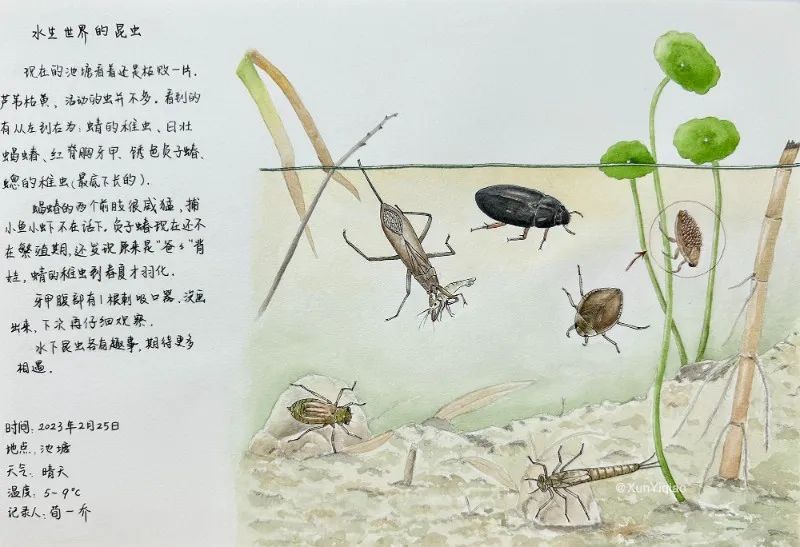 水生世界的昆虫
现在的池塘看着还是枯败一片.
芦苇枯黄、活动的虫并不多. 看到的
有从左到右为: 蜻的稚虫、日壮
蝎蝽、红脊胸牙甲、锈色负子蝽、
蟌的稚虫(最底下长的).
蝎蝽的两个前肢很威猛, 捕
小鱼小虾不在话下. 负子蝽现在还不
在繁殖期, 还发现原来是"爸爸"背
娃, 蜻的稚虫到春夏才羽化.
牙甲腹部有1根刺吸口器, 没画
出来, 下次再仔细观察.
水下昆虫各有趣事, 期待更多
相遇.
时间: 2023年2月25日
地点: 池塘
天气: 晴天
温度: 5~9℃
记录人: 荀一乔
@XunYiqiao